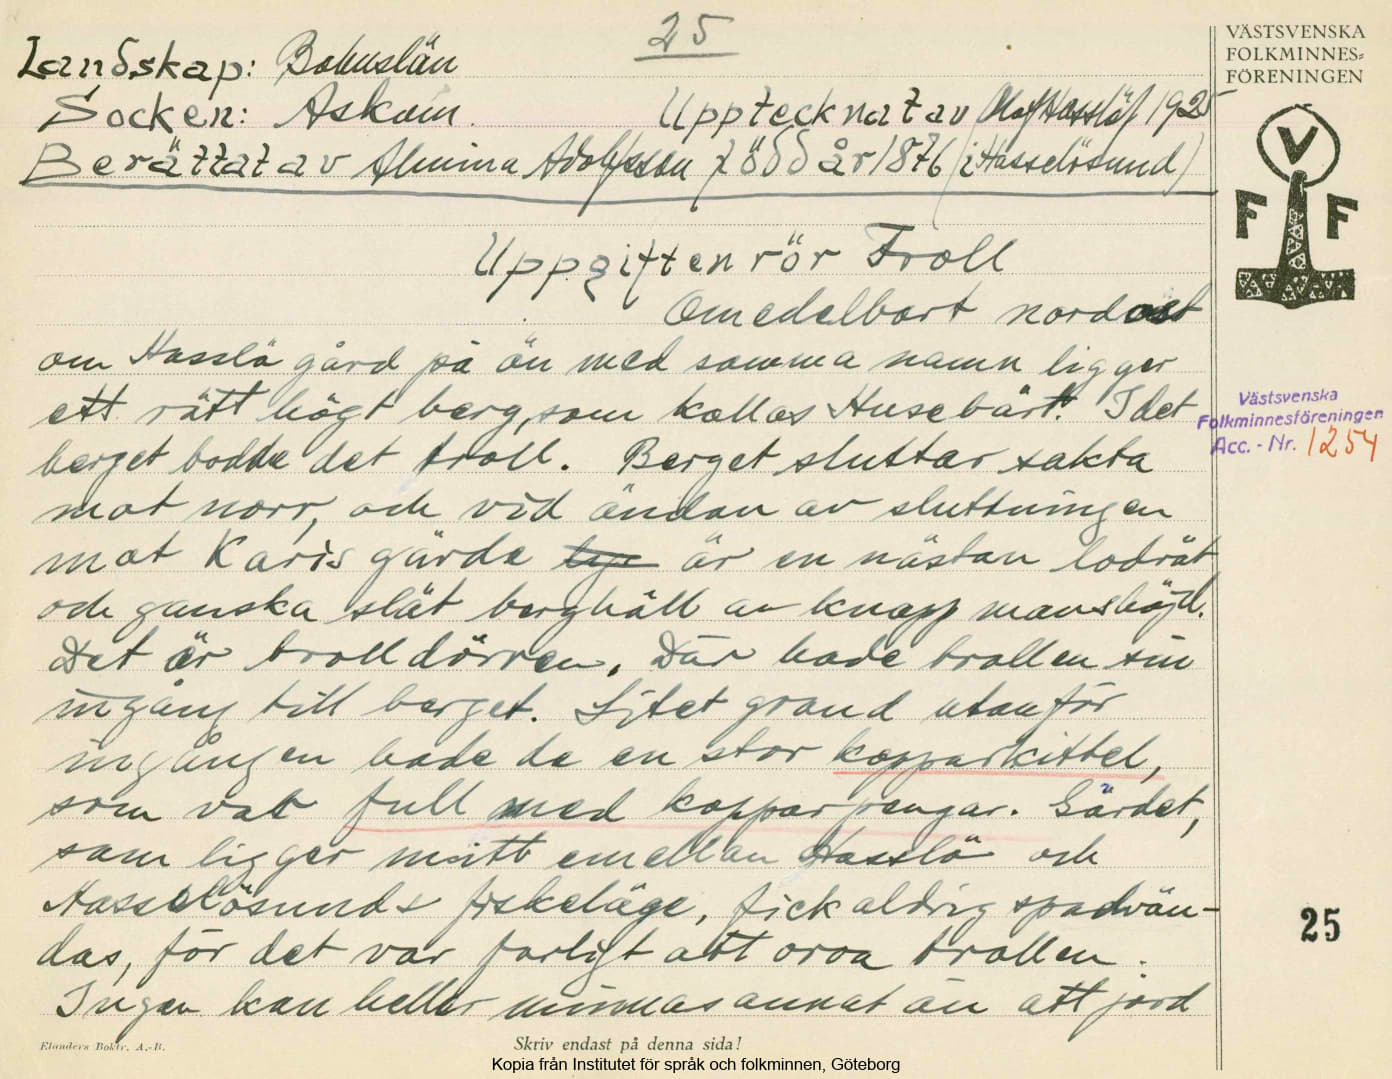 25
VÄSTSVENSKA
FOLKMINNES-
FÖRENINGEN
Landskap: Bohuslän
Socken: Askum. Upptecknat av Olof Hasslöf 1925
Berättat av Almina Adolfsson född år 1876 (i Hasselösund)
V
F F
Uppgiften rör Troll
Omedelbart nordost
om Hasslö gård på ön med samma namn ligger
ett rätt högt berg, som kallas Husebärt. I det
berget bodde det troll. Berget sluttar sakta
mot norr, och vid ändan av sluttningen
mot Karis gärde är en nästan lodrät
och ganska slät berghäll av knapp manshöjd.
Det är trolldörren. Där hade trollen sin
ingång till berget. Litet grand utanför
ingången hade de en stor kopparkittel,
som var full med kopparpengar. Gärdet,
som ligger mitt emellan Hasslö och
Hasselösunds fiskeläge, fick aldrig spadvän-
das, för det var farligt att oroa trollen.
Ingen kan heller minnas annat än att jord
Västsvenska
Folkminnesföreningen
Acc. - Nr. 1254
25
Elanders Boktr. A.-B.
Skriv endast på denna sida!
Kopia från Institutet för språk och folkminnen, Göteborg